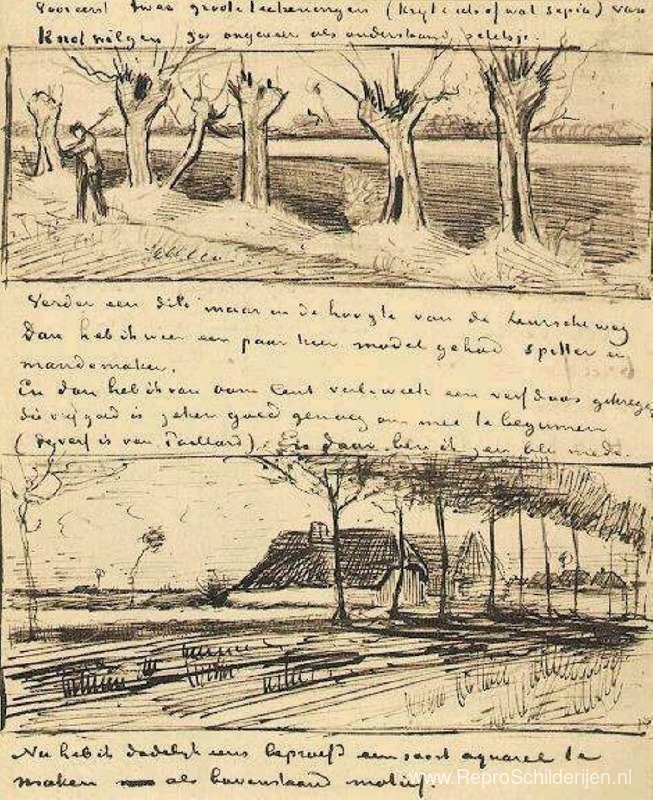 Vooreerst twee groote teekeningen (krijt & ietsof wat sepia) van
Knotwilgen zoo ongeveer als onderstaand schetsje.
Verder een dito maar in de hoogte van de Leurscheweg
Dan heb ik weer een paar keer model gehad spitter en
mandemaker.
En dan heb ik van oom Cent verl. week een verfdoos gekregen
die vrij goed is zeker goed genoeg om mee te beginnen
(de verf is van Paillard). En daar ben ik zeer blij mede.
Nu heb ik dadelijk eens beproefd een soort aquarel te
maken als bovenstaand motief.
www.ReproSchilderijen.nl